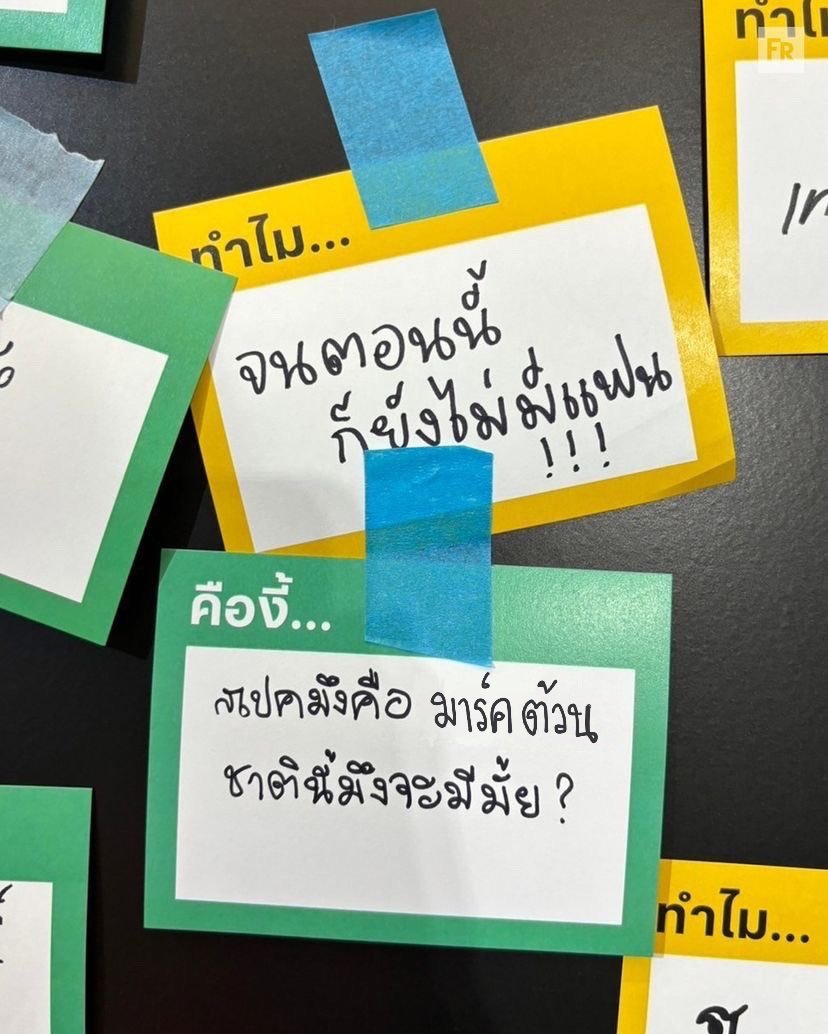 ทำไ
FR
ทำไม...
จนตอนนี้
ก็ยังไม่มีแฟน
!!!
คืองี้...
สเปคมึงคือ มาร์ค ต้วน
ชาตินี้มึงจะมีมั้ย ?
ทำไม...